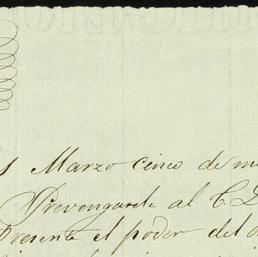 Marzo cinco de
Prevengasele al C.
Presente el poder del